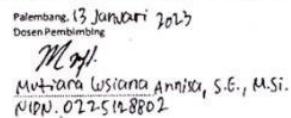 Palembang, 13 Januari 2023
Dosen Pembimbing
Mutiara Lusiana Annisa, S.E., M.Si.
NIDN. 0225128802